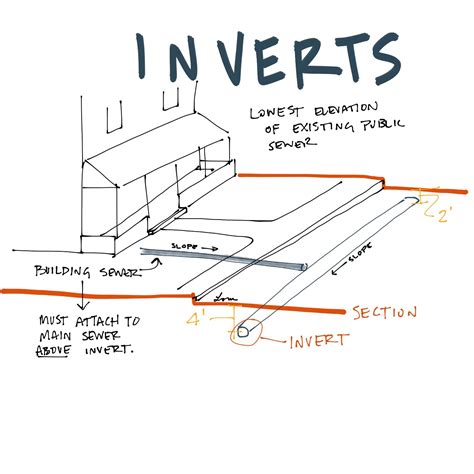 INVERTS
LOWEST ELEVATION
OF EXISTING PUBLIC
SEWER
2'
SLOPE
SLOPE
BUILDING SEWER
MUST ATTACH TO
MAIN SEWER
ABOVE INVERT.
4'
SECTION
INVERT